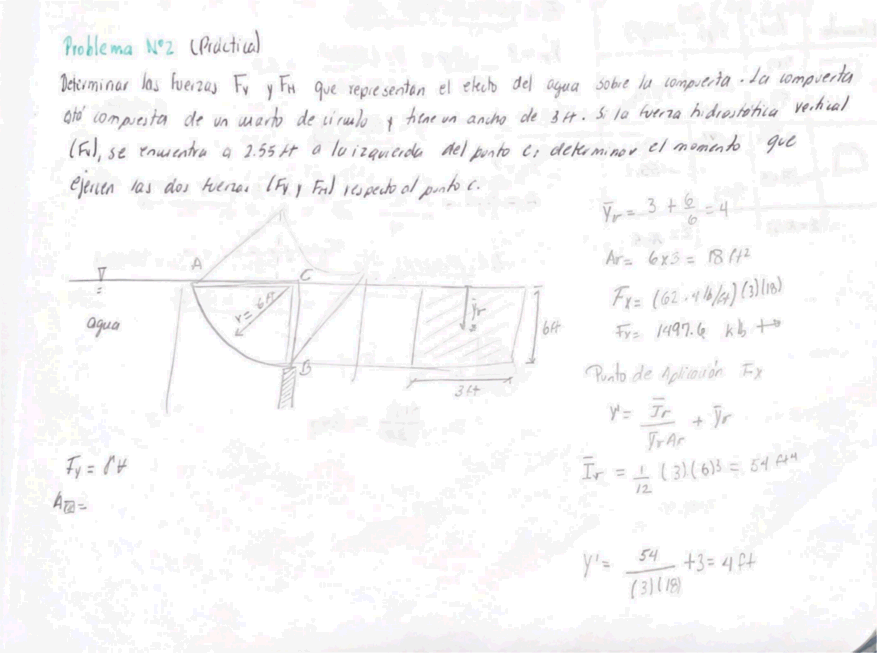 Problema N°2 (Práctica)
Determinar las fuerzas Fv y FH que representan el efecto del agua sobre la compuerta. La compuerta
está compuesta de un cuarto de círculo y tiene un ancho de 3 ft. Si la fuerza hidrostática vertical
(Fv), se encuentra a 2.55 ft a la izquierda del punto C, determinar el momento que
ejercen las dos fuerzas (Fv y FH) respecto al punto C.
ȳr = 3 + 6/6 = 4
Ar = 6x3 = 18 ft²
A
C
r = 6ft
ȳr
3
6ft
agua
B
3 ft
Fx = (62.4 lb/ft)(3)(18)
Punto de Aplicación Fx
y' = Īr / ȳr Ar + ȳr
Fv = γ∀
Īr = 1/12 (3)(6)³ = 54 ft⁴
y' = 54 / (3)(18) + 3 = 4 ft